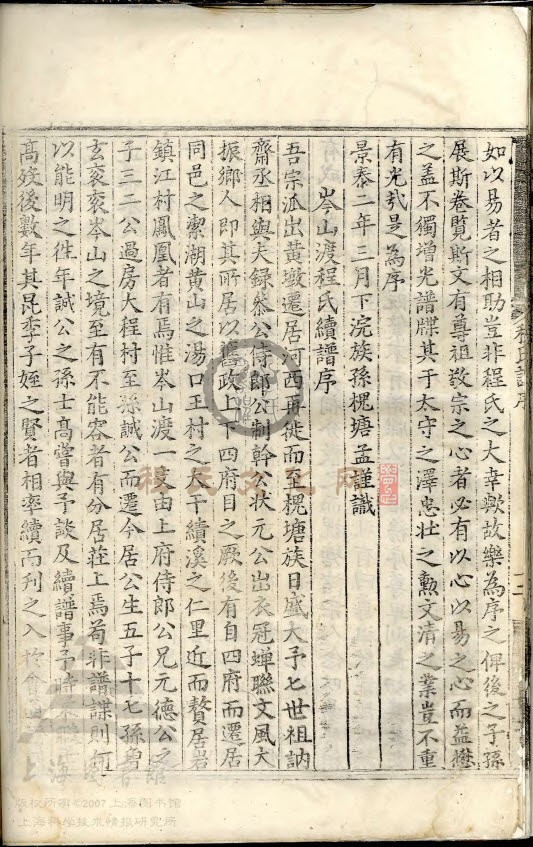 如以易者之相助豈非程氏之大幸歟故樂為序之俾後之子孫
展斯卷覽斯文有尊祖敬宗之心者必有以心以易之心而益懋
之盖不獨增光譜牒其于太守之澤忠壯之勳文清之業豈不重
有光㦲是為序
景泰二年三月下浣族孫槐塘孟謹識
岑山渡程氏續譜序
吾宗派出黃墩遷居河西再徙而至槐塘族日盛大予七世祖訥
齋丞相與夫録叅公侍郎公制幹公狀元公出衣冠蟬聯文風大
振鄉人即其所居以舊政上下四府目之厥後有自四府而遷居
同邑之潔湖黃山之湯口王村之大干績溪之仁里近而贅居岩
鎮江村鳳凰者有焉惟岑山渡一支由上府侍郎公兄元德公之
子三二公過房大程村至孫誠公而遷今居公生五子十七孫曾
玄衮衮岑山之境至有不能容者有分居莊上焉苟非譜諜則何
以能明之徃年誠公之孫士高嘗與予談及續譜事予時
高歿後數年其昆季子姪之賢者相率續而刋之入於會
程氏譜序
二
程氏文化网
上海圖書館
版权所有©2007 上海图书馆
上海科学技术情报研究所